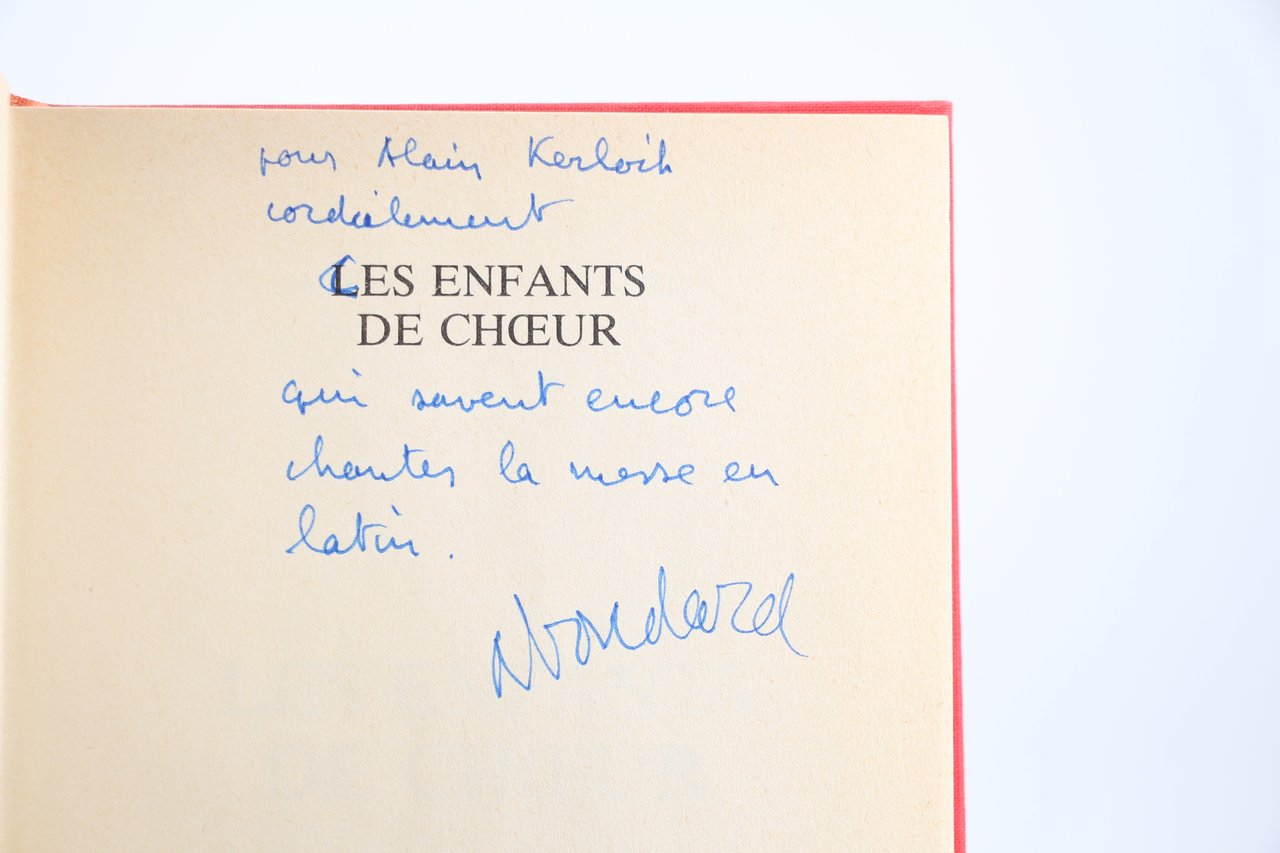 pour Alain Kerloch
cordialement
CES ENFANTS
DE CHŒUR
qui savent encore
chanter la messe en
latin.
ABoudard